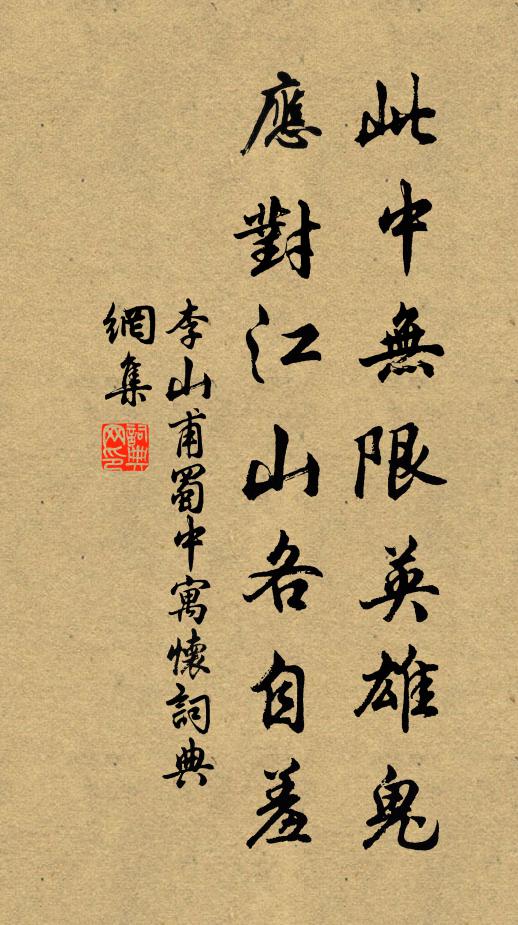 此中無限英雄鬼
應對江山各自羞
李山甫蜀中寓懷詞典
網集
詞典網印